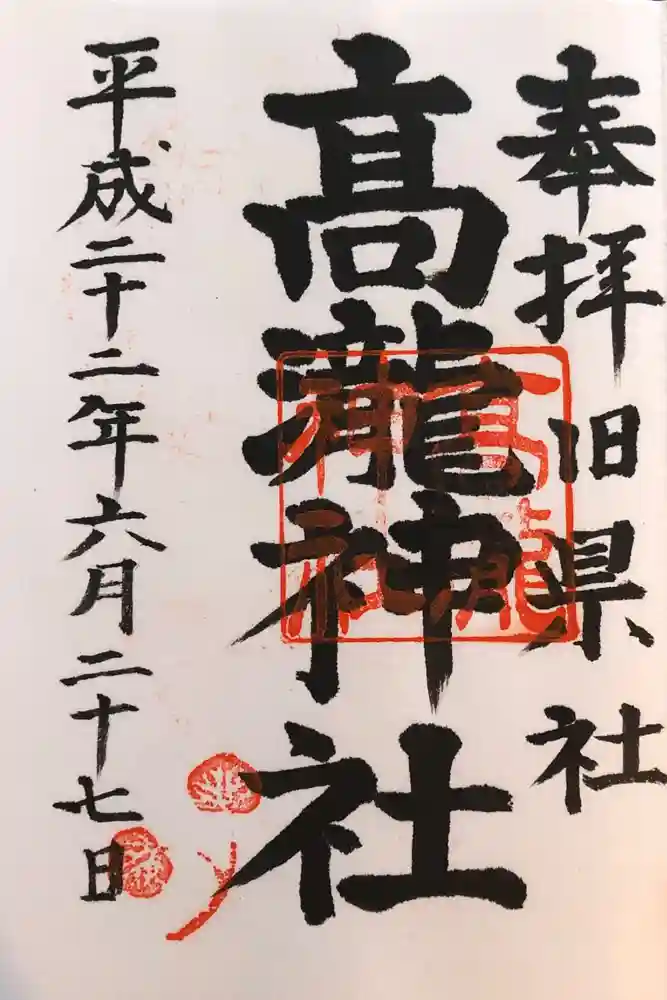 奉拝 旧県社
髙瀧神社
平成二十二年六月二十七日